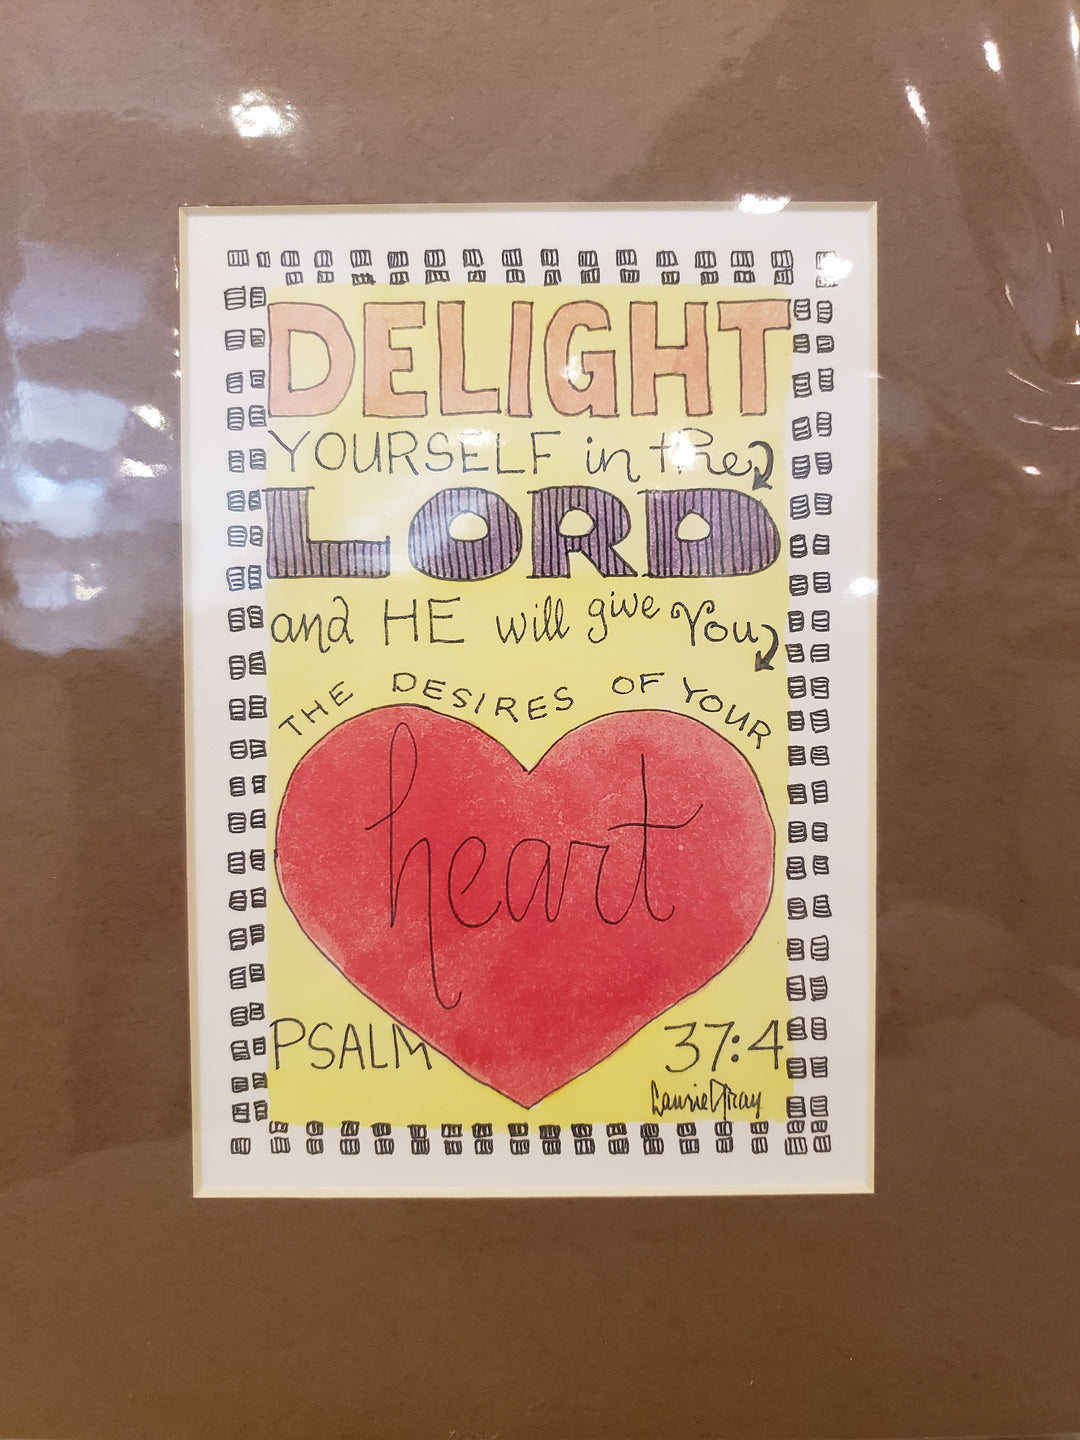 DELIGHT
YOURSELF in the
LORD
and HE will give You
THE DESIRES OF YOUR
heart
PSALM 37:4
Laurie Gray